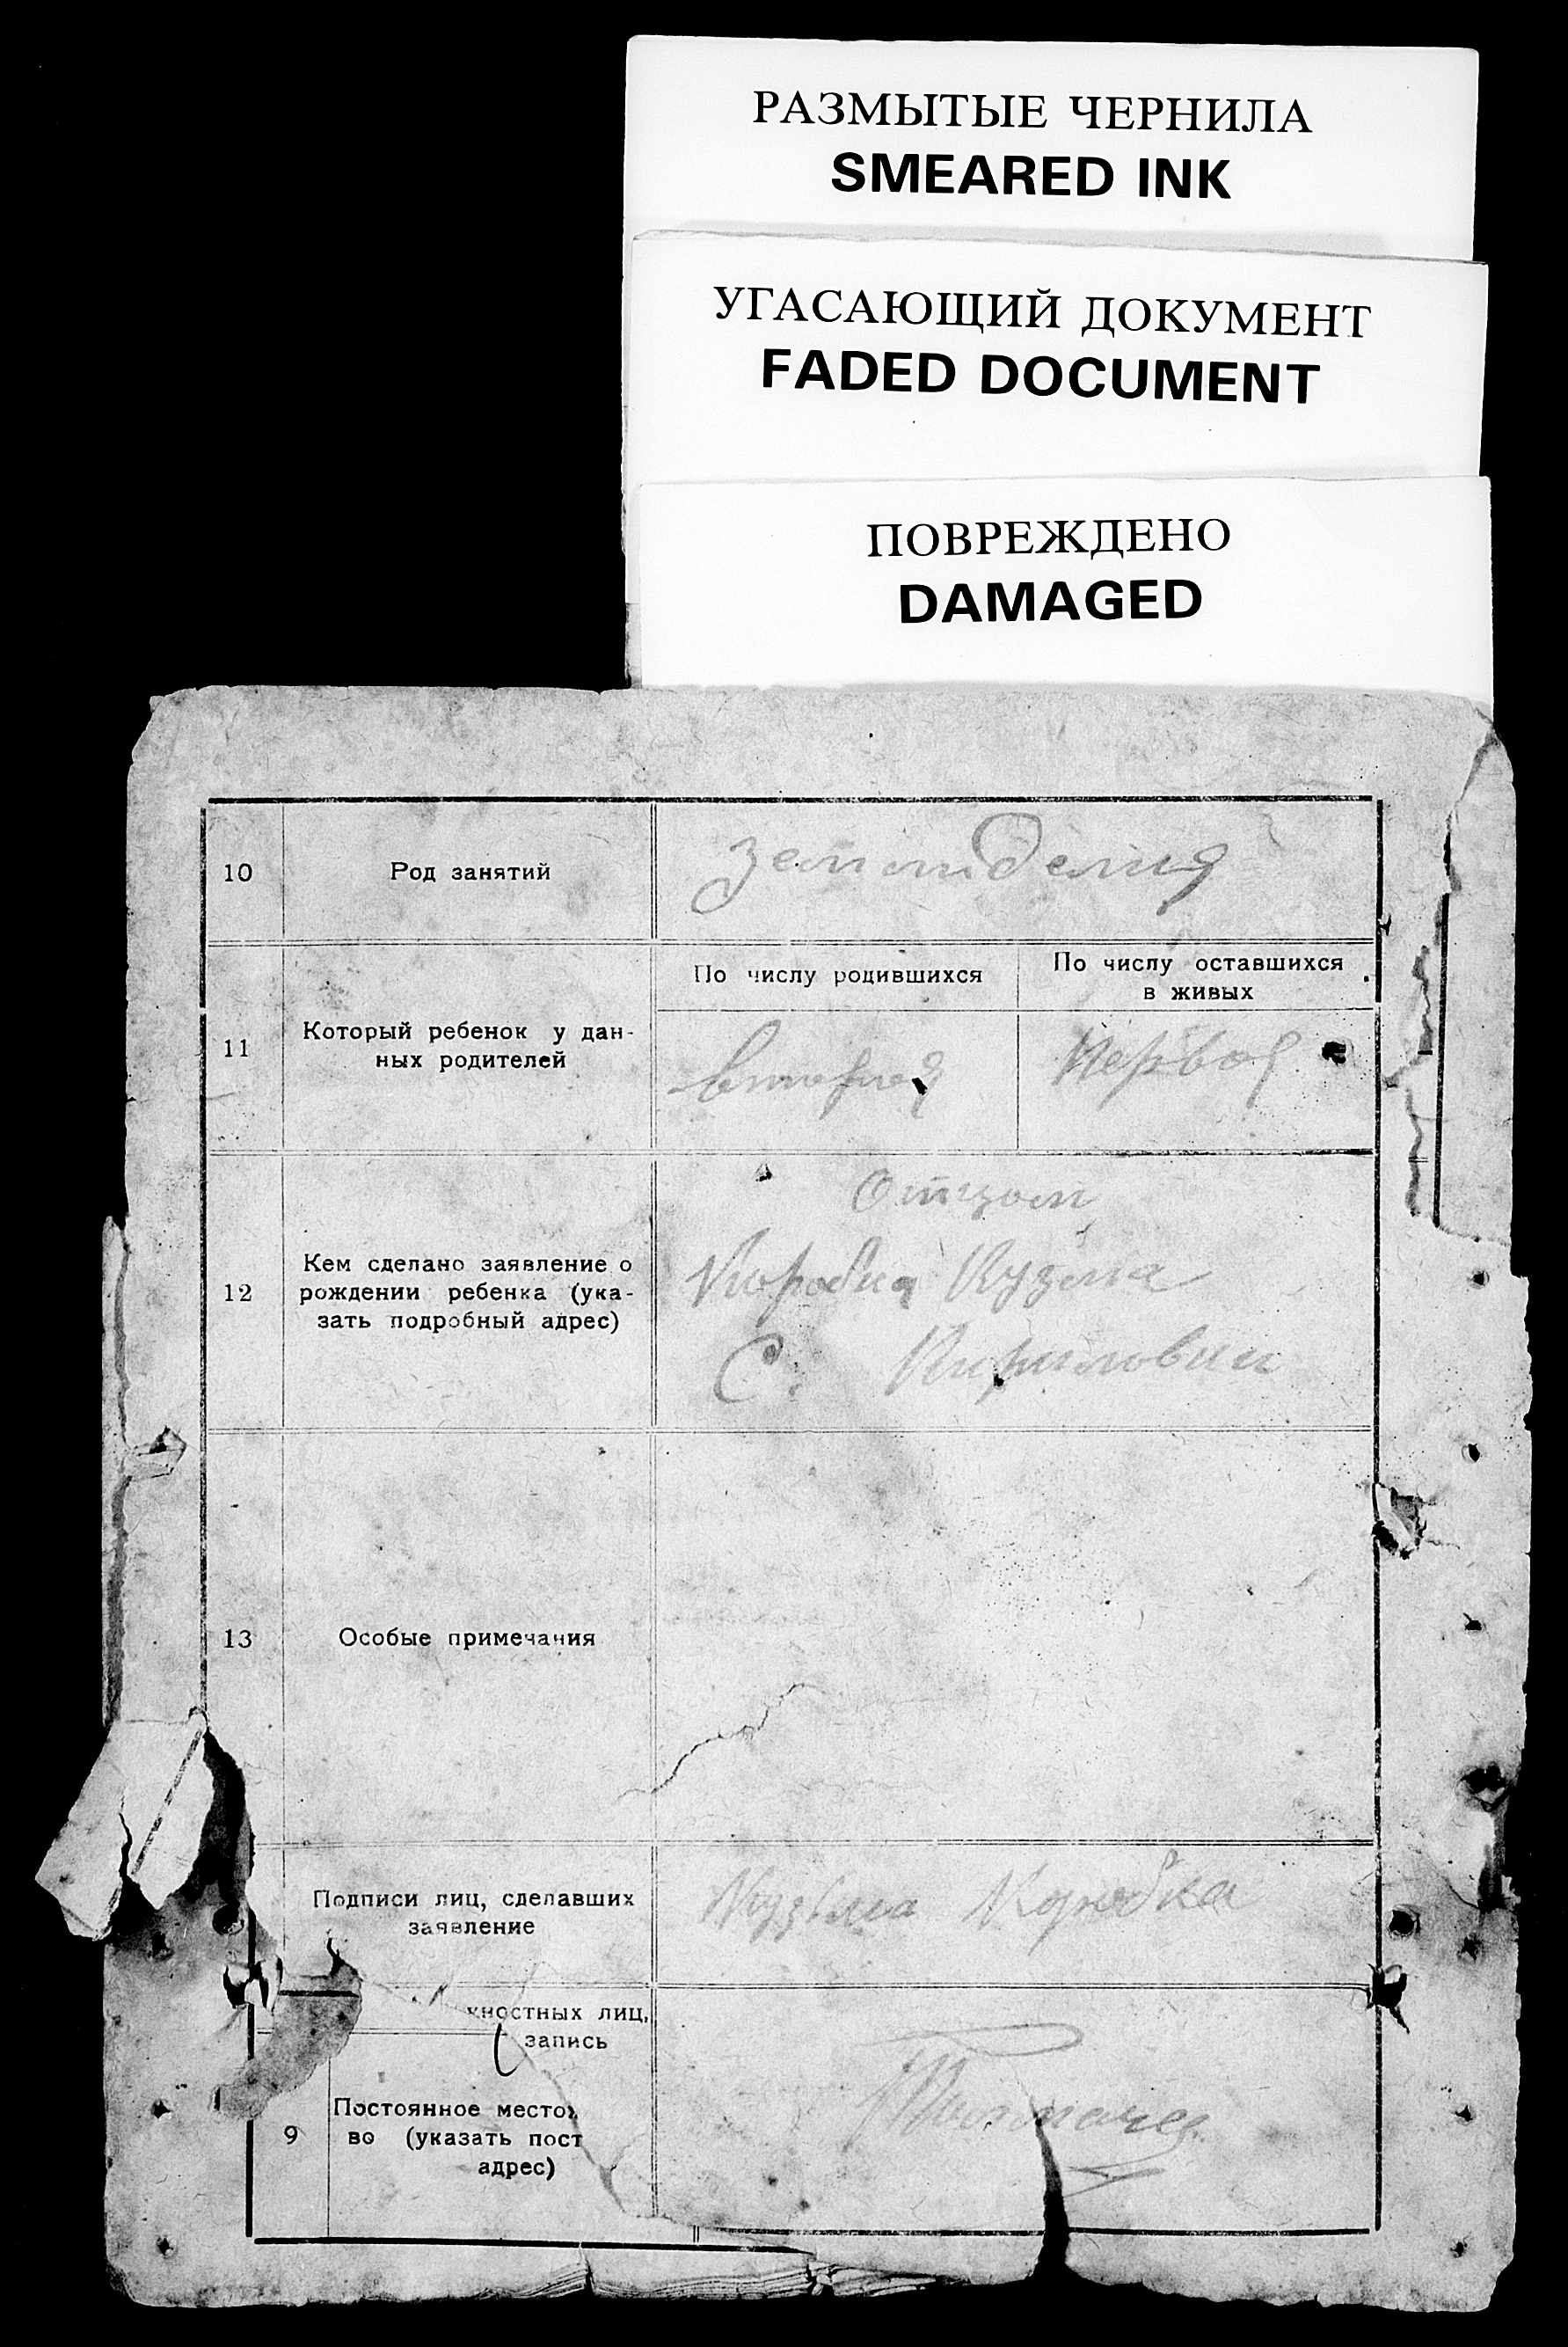 РАЗМЫТЫЕ ЧЕРНИЛА
SMEARED INK
УГАСАЮЩИЙ ДОКУМЕНТ
FADED DOCUMENT
ПОВРЕЖДЕНО
DAMAGED
10
Род занятий
11
Который ребенок у дан-
ных родителей
По числу родившихся
По числу оставшихся
в живых
вторая
Первая
12
Кем сделано заявление о
рождении ребенка (ука-
зать подробный адрес)
Отцом
Кузьма
С.
13
Особые примечания
Подписи лиц, сделавших
заявление
Кузьма Коробка
ностных лиц,
запись
9
Постоянное место
во (указать пост
адрес)